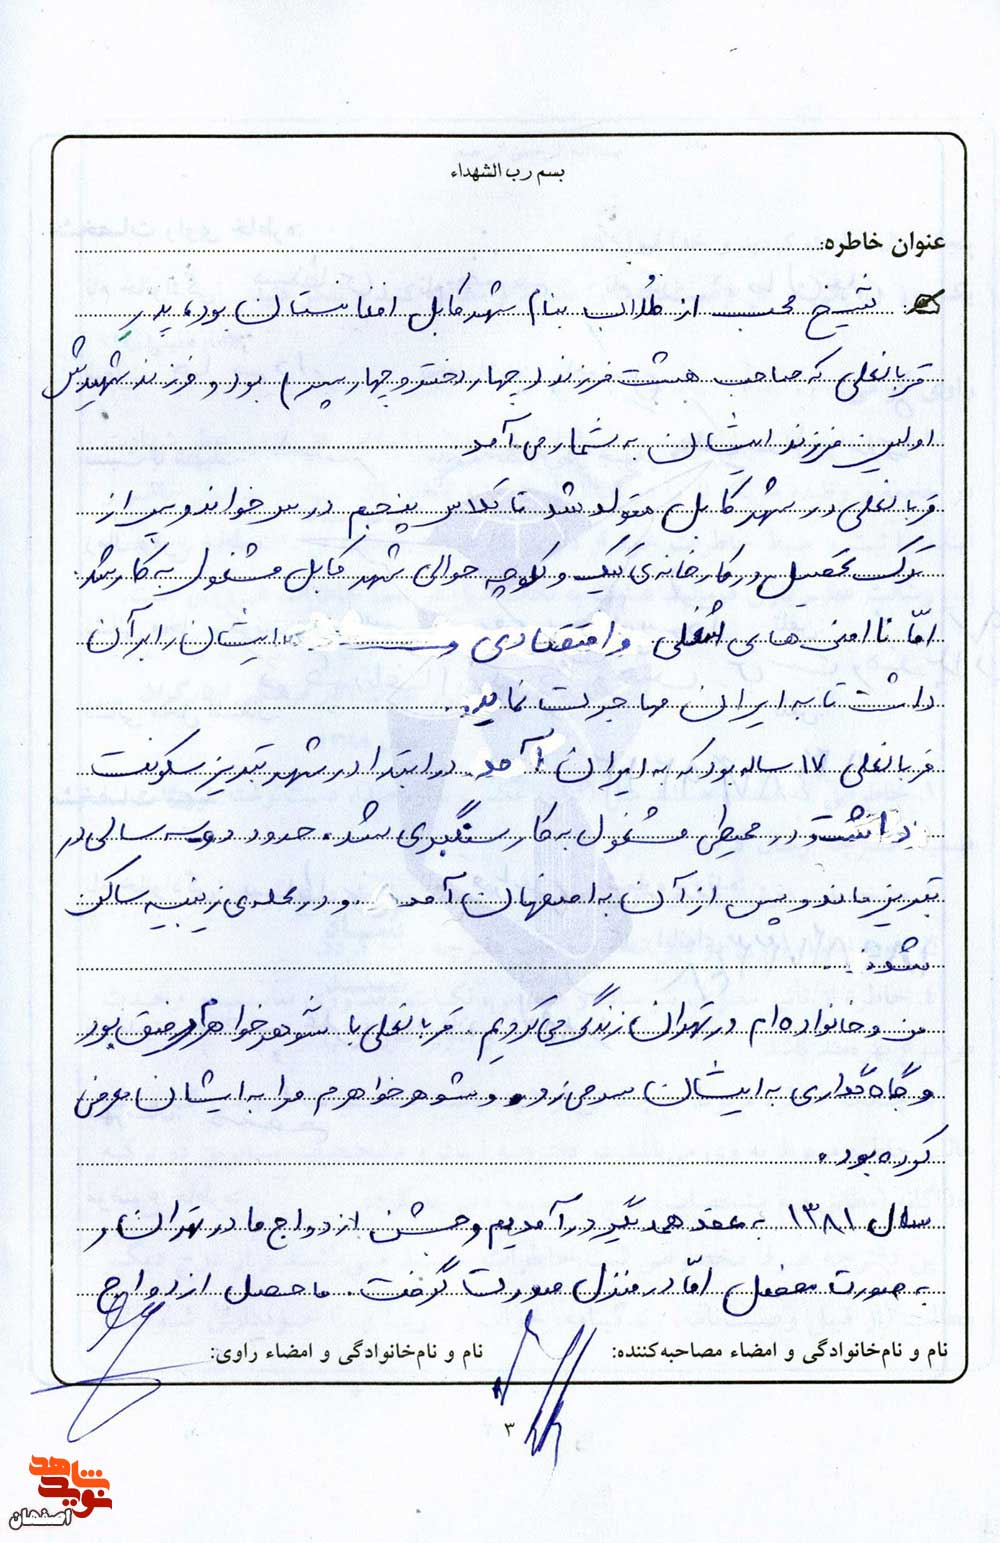 بسم رب الشهداء
عنوان خاطره:
شیخ محب از طلاب بنام شهر کابل افغانستان بود، پدر
قربانعلی که صاحب هشت فرزند (چهار دختر و چهار پسر) بود و فرزند شهیدش
اولین فرزند ایشان به شمار می آمد
قربانعلی در شهر کابل متولد شد تا کلاس پنجم درس خواند و پس از
ترک تحصیل در کارخانه ی کیک و کلوچه حوالی شهر کابل مشغول به کار شد
امّا ناامنی های شغلی و اقتصادی ایشان را بر آن
داشت تا به ایران مهاجرت نماید.
قربانعلی ۱۷ ساله بود که به ایران آمد. در ابتدا در شهر تبریز سکونت
داشت و در محیطی مشغول به کار سنگبری شد. حدود دو سه سالی در
تبریز ماند و پس از آن به اصفهان آمد و در محله ی زینبیه ساکن
شد.
من و خانواده ام در تهران زندگی می کردیم، قربانعلی با شوهر خواهرم رفیق بود
و گاه گداری به ایشان سر می زد و شوهر خواهرم مرا به ایشان معرفی
کرده بود.
سال ۱۳۸۱ به عقد همدیگر در آمدیم و جشن ازدواج ما در تهران و
به صورت مفصل امّا در منزل صورت گرفت. ماحصل ازدواج
نام و نام‌خانوادگی و امضاء مصاحبه‌کننده: نام و نام‌خانوادگی و امضاء راوی:
۳
نوید شاهد
اصفهان